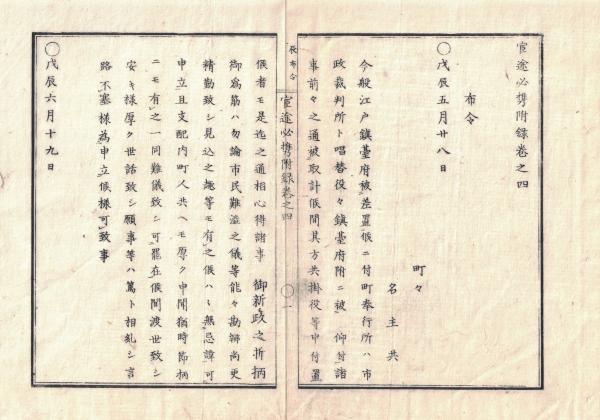 官途必携附録卷之四
○戊辰五月廿八日
布令
町々
名主共
今般江戸鎮臺府被差置候ニ付町奉行所ハ市
政裁判所ト唱替役々鎮臺府附ニ被 仰付諸
事前々之通被取計候間其方共掛役等申付置
辰布令
官途必携附録卷之四
○一
候者モ是迄之通相心得諸事 御新政之折柄
御為筋ハ勿論市民難澁之儀等能々勘辨尚更
精勤致シ見込之趣等モ有之候ハヽ無忌諱可
申立且支配内町人共ヘモ厚ク申聞猶時節柄
ニモ有之一同難儀致シ可罷在候間渡世致シ
安キ様厚ク世話致シ願事等ハ篤ト相糺シ言
路不塞様為申立候様可致事
○戊辰六月十九日